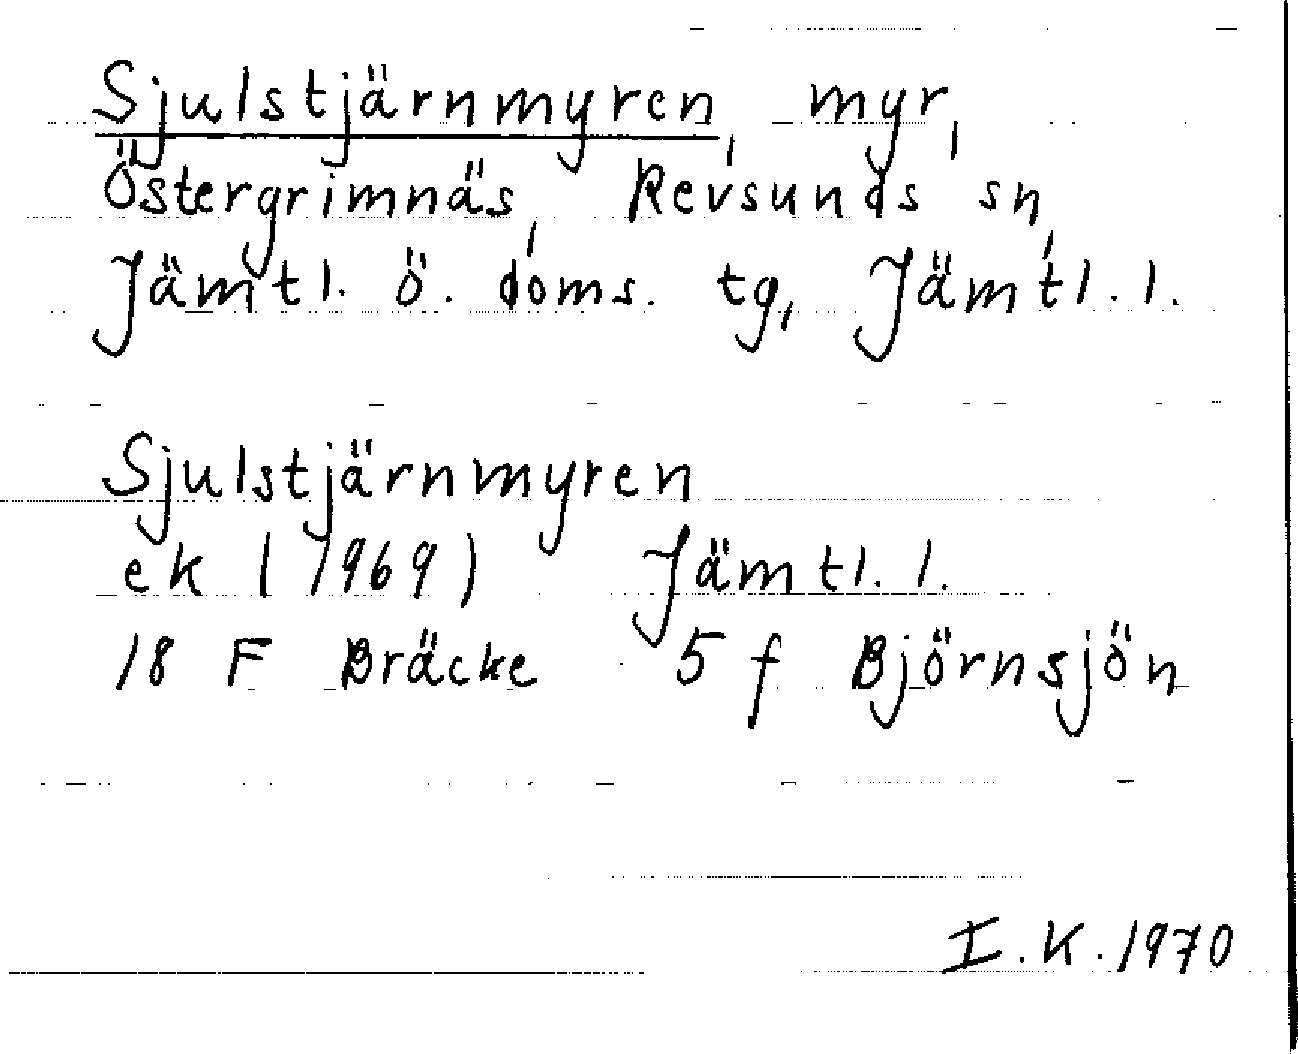 Sjulstjärnmyren, myr,
Östergrimnäs, Revsunds sn,
Jämtl. ö. doms. tg, Jämtl. l.
Sjulstjärnmyren
ek (1969) Jämtl. l.
18 F Bräcke 5 f Björnsjön
I. K. 1970